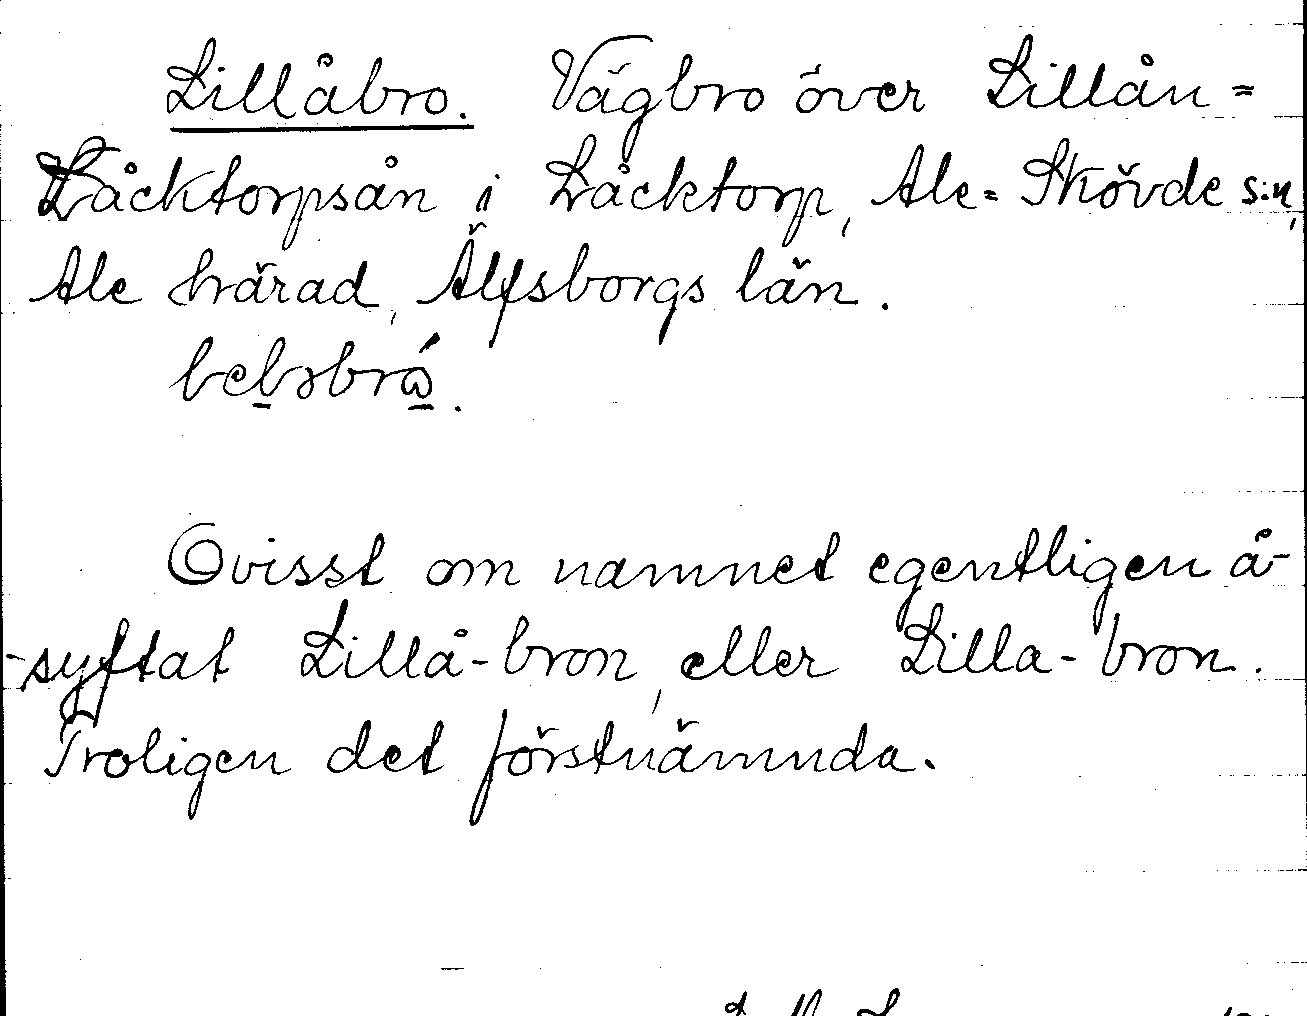 Lillåbro. Vägbro över Lillån =
Låcktorpsån i Låcktorp, Ale-Skövde s:n,
Ale härad, Älfsborgs län.
Ovisst om namnet egentligen å-
-syftat Lillå-bron, eller Lilla-bron.
Troligen det förstnämnda.